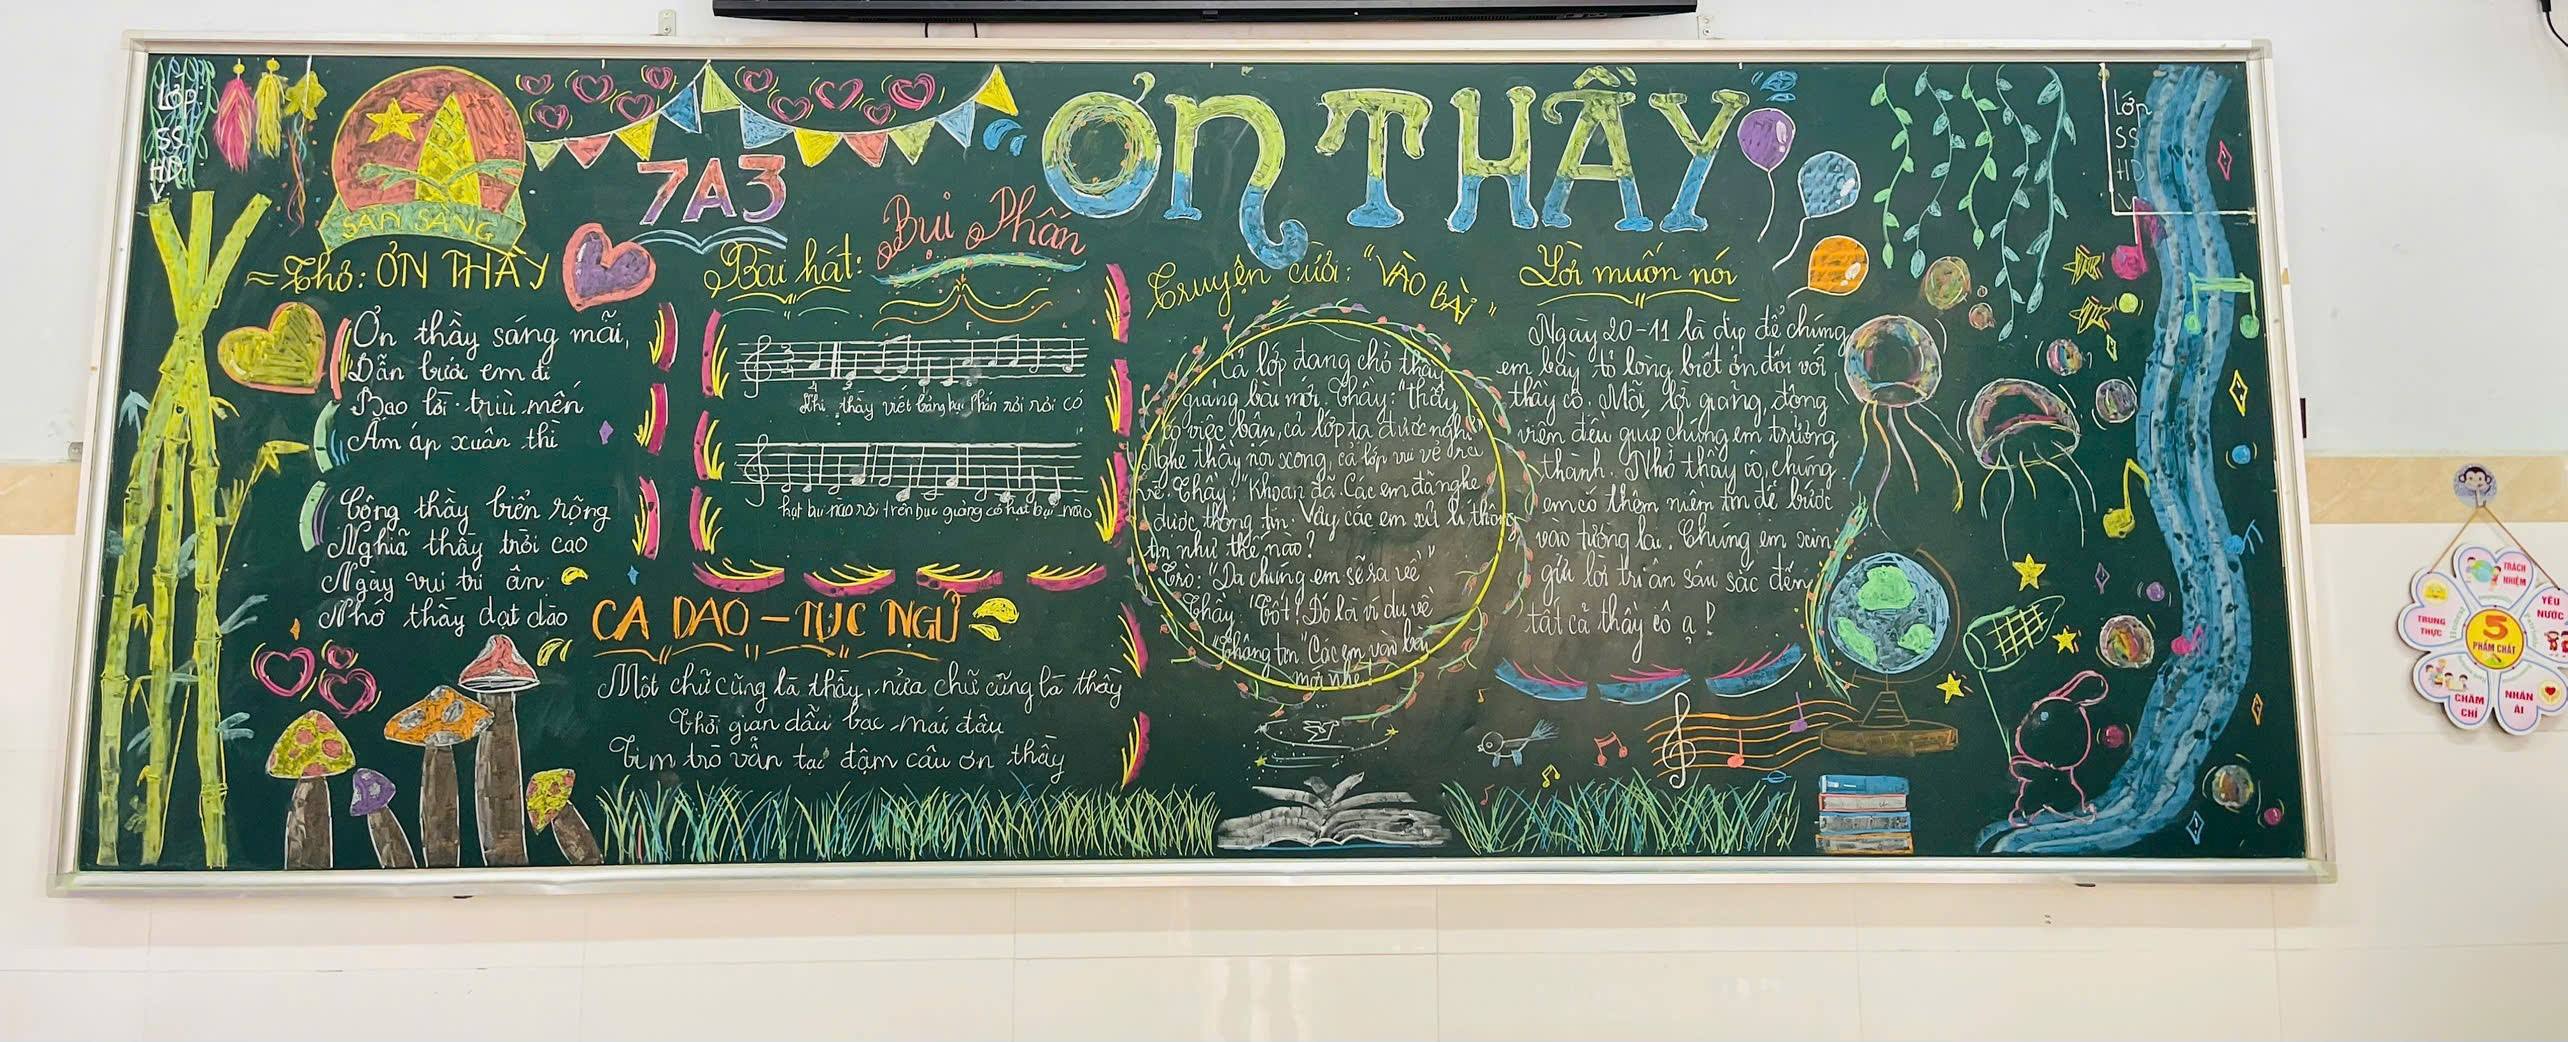 Lớp:
SS
HD:
SẴN SÀNG
7A3
ƠN THẦY
Lớp
SS
HD
Thơ: ƠN THẦY
Ơn thầy sáng mãi,
Dẫn bước em đi
Bao lời trìu mến
Ấm áp xuân thì
Công thầy biển rộng
Nghĩa thầy trời cao
Ngày vui tri ân
Nhớ thầy dạt dào
Bài hát: Bụi Phấn
Khi thầy viết bảng bụi Phấn rơi rơi có
hạt bụi nào rơi trên bục giảng có hạt bụi nào
CA DAO – TỤC NGỮ
Một chữ cũng là thầy, nửa chữ cũng là thầy
Thời gian dẫu bạc mái đầu
Tim trò vẫn tạc đậm câu ơn thầy
Truyện cười: "VÀO BÀI"
Cả lớp đang chờ thầy
giảng bài mới. Thầy: "thầy
có việc bận, cả lớp ta được nghỉ"
Nghe thầy nói xong, cả lớp vui vẻ ra
về. Thầy: "Khoan đã. Các em đã nghe
được thông tin. Vậy các em xử lí thông
tin như thế nào?
Trò: "Dạ chúng em sẽ ra về"
Thầy "Tốt! Đó là ví dụ về
"Thông tin". Các em vào bài
mới nhé!
Lời muốn nói
Ngày 20-11 là dịp để chúng
em bày tỏ lòng biết ơn đối với
thầy cô. Mỗi lời giảng, động
viên đều giúp chúng em trưởng
thành. Nhờ thầy cô, chúng
em có thêm niềm tin để bước
vào tương lai. Chúng em xin
gửi lời tri ân sâu sắc đến
tất cả thầy cô ạ!
TRÁCH NHIỆM
YÊU NƯỚC
TRUNG THỰC
5
PHẨM CHẤT
CHĂM CHỈ
NHÂN ÁI